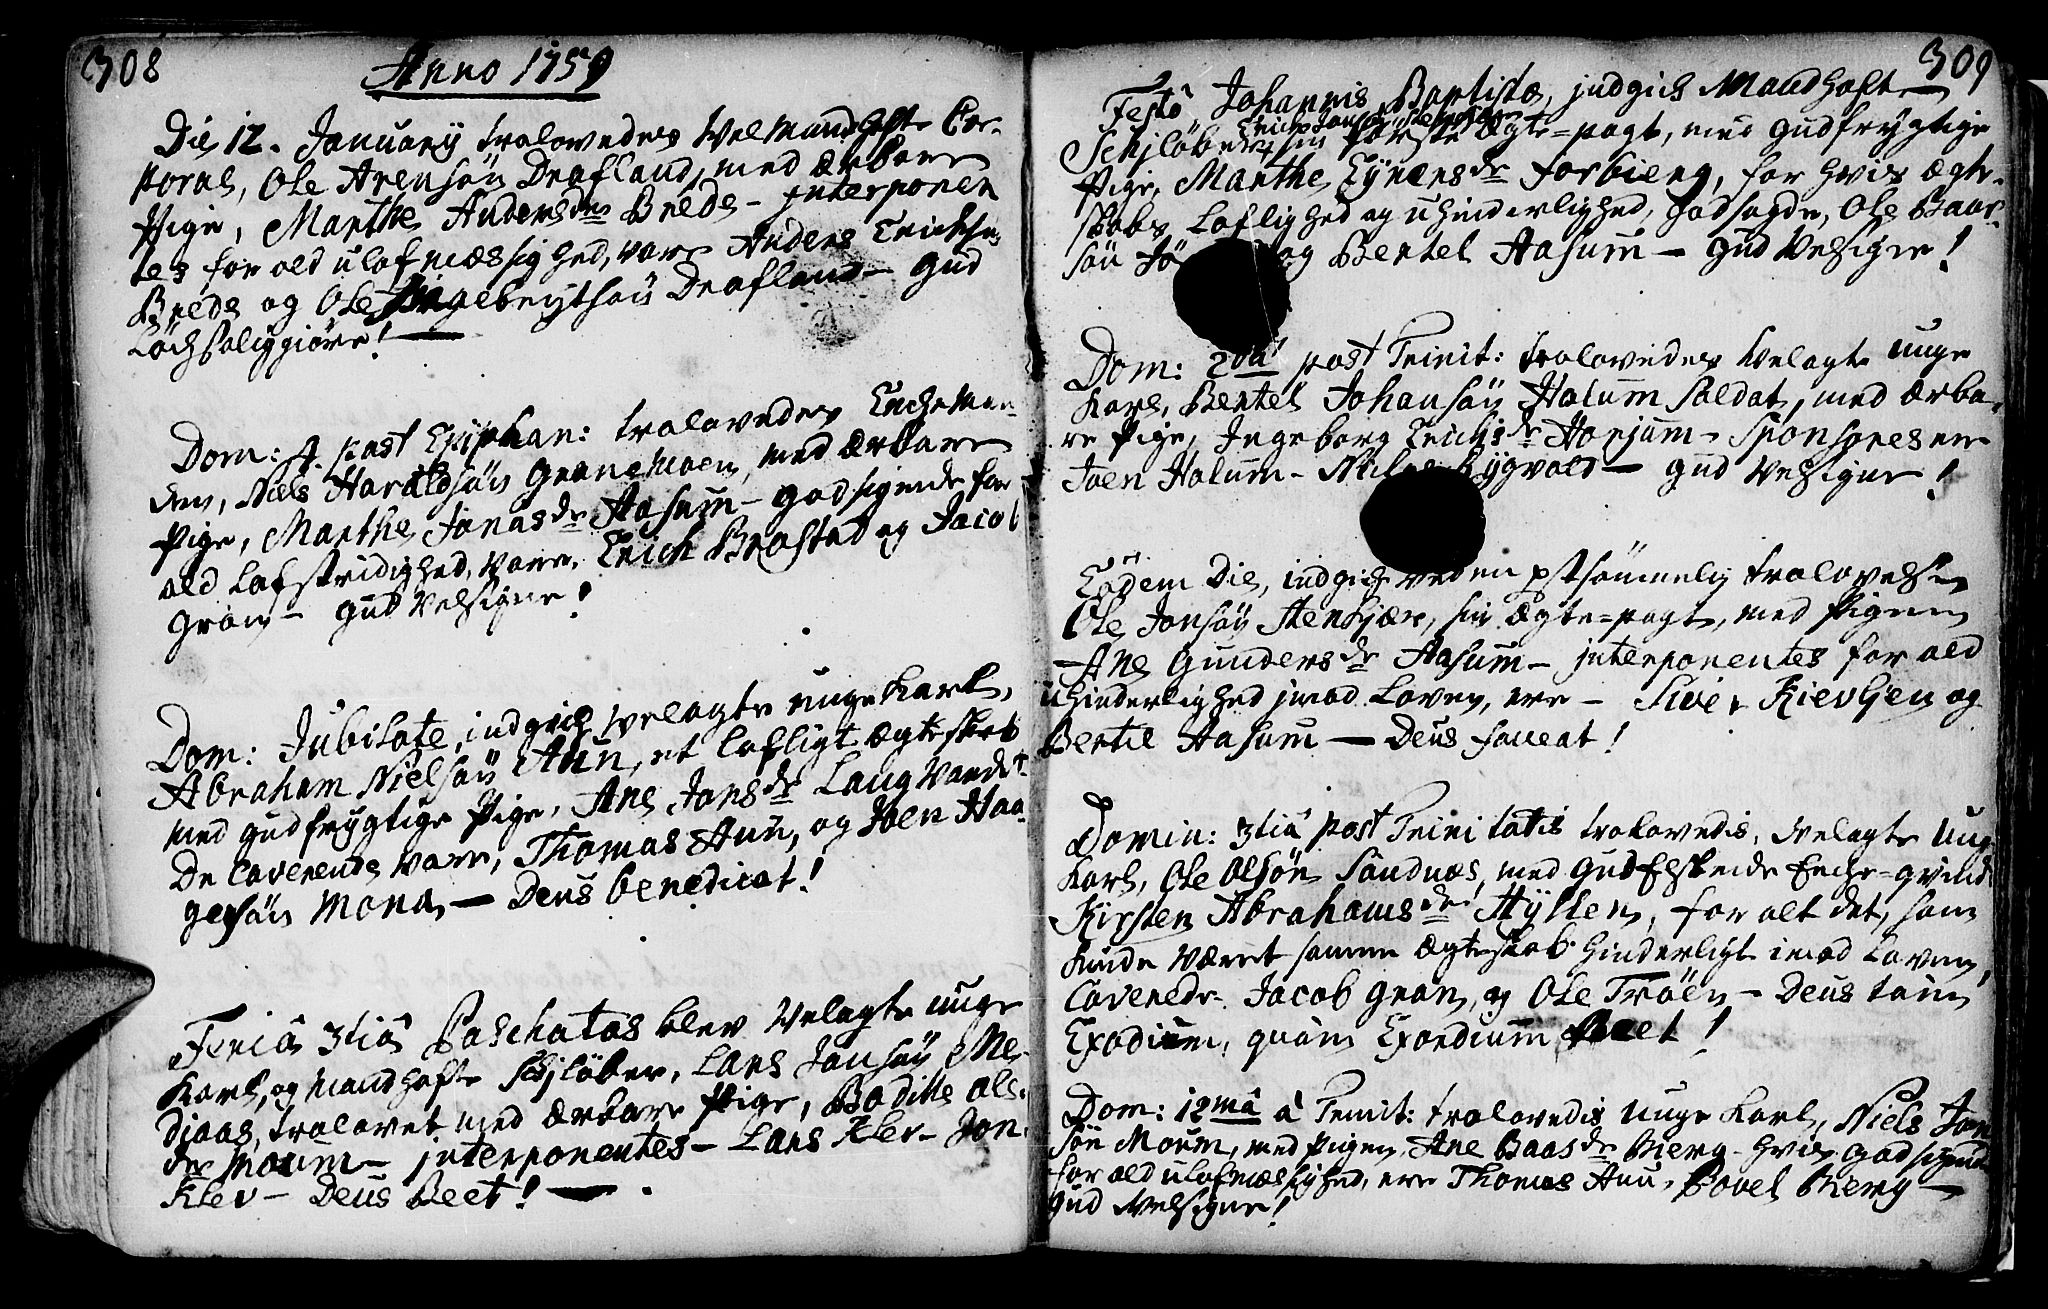 308
Anno 1759
Die 12. January trolovedes Velmandhafte Cor-
poral, Ole Arensøn Drafland, med ærbare
Pige, Marthe Andersdr Brede - Interponen
tes for ald ulofmæssighed, vare Anders Erichsøn
Brede og Ole Ingebrigtsøn Drafland - Gud
Lychsaliggiøre!
Dom: 4. post Epiphan: trolovedes Enchemanden
den, Niels Haraldsøn Granemoen, med ærbare
Pige, Marthe Jonasdr Aasum - Godsigende for
ald Lofstridighed, vare, Erich Brastad og Jacob
Gran - Gud Velsigne!
Dom: Jubilate, indgich Velagte unge Karl,
Abraham Nielsøn Aun, et lofligt Ægteskab
med gudfrygtige Pige, Ane Jonsdr Langvandet
De Caverende vare, Thomas Aun, og Joen Haa-
gensøn Mona - Deus benedicat!
Feriâ 3tiâ Paschatos blev Velagte unge
Karl, og Mandhafte Schjløber, Lars Jonsøn Me-
djaas, trolovet med ærbare Pige, Bodille Ols-
dr Moum - Interponentes - Lars Klev - Jon
Klev - Deus Beet!
309
Festô, Johannis Baptistæ, indgich Mandhafte
Schjløber, sin første Ægte=pagt, med gudfrygtige
Pige, Marthe Eynersdr Forbierg, for hvis Ægte-
skabs Loflighed og uhinderlighed, godsagde, Ole Baar-
søn og Bertel Aasum - Gud Velsigne!
Dom: 2dâ post Trinit: trolovedes Velagte unge
Karl, Bertel Johansøn Holum Soldat, med ærba-
re Pige, Ingeborg Erichsdr Horjum - Sponsores ere
Joen Holum - Rygvold - Gud Velsigne!
Eôdem Die, indgich ved en pstsømmelig trolovelse
Ole Jonsøn Stenkjær, sin Ægte=pagt, med Pigen
Ane Gundersdr Aasum - Interponentes for ald
uhinderlighed imod Loven, ere - Siver Kievlien og
Bertil Aasum - Deus faveat!
Domin: 3tiâ post Trinitatis trolovedis, Velagte Ung
Karl, Ole Olsøn Sandnæs, med GudElskende Enche=qvinde
Kirsten Abrahamsdr Hyllen, for alt det, som
kunde været samme Ægteskab hinderligt imod Loven,
Caverede Jacob Gran, og Ole Trøen - Deus tam
Exodium, quàm Exordium Beet!
Dom: 12mâ à Trinit: trolovedis Unge Karl, Niels Jon
søn Moum, med Pigen Ane Baasdr Bierg - hvis Godsigende
for ald ulofmæssighed, ere Thomas Aun, Povel Bierg -
Gud Velsigne!